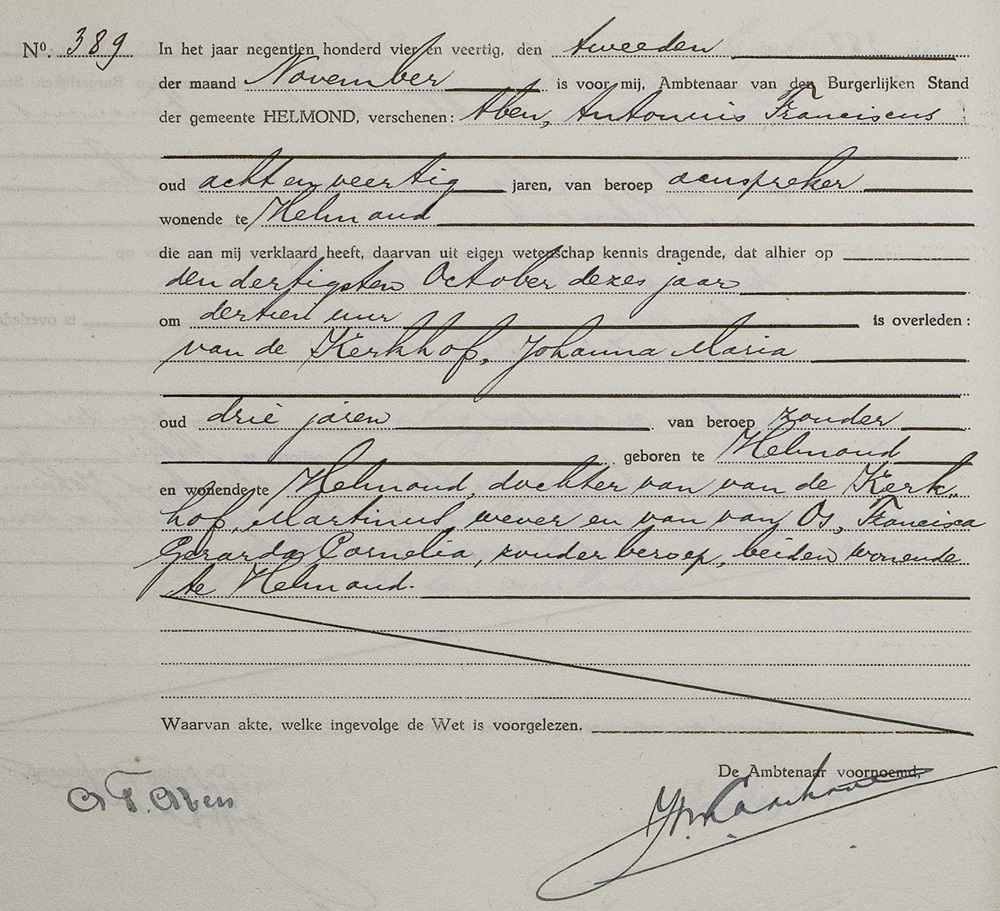 Nº. 389 In het jaar negentien honderd vier en veertig, den tweeden
der maand November is voor mij, Ambtenaar van den Burgerlijken Stand
der gemeente HELMOND, verschenen: Aben, Antonius Franciscus
oud acht en veertig jaren, van beroep aanspreker
wonende te Helmond
die aan mij verklaard heeft, daarvan uit eigen wetenschap kennis dragende, dat alhier op
den dertigsten October dezes jaar
om dertien uur is overleden:
van de Kerkhof, Johanna Maria
oud drie jaren van beroep zonder
geboren te Helmond
en wonende te Helmond, dochter van van de Kerk-
hof, Martinus, wever en van van Os, Francisca
Gerarda Cornelia, zonder beroep, beiden wonende
te Helmond.
Waarvan akte, welke ingevolge de Wet is voorgelezen.
De Ambtenaar voornoemd,
A F Aben